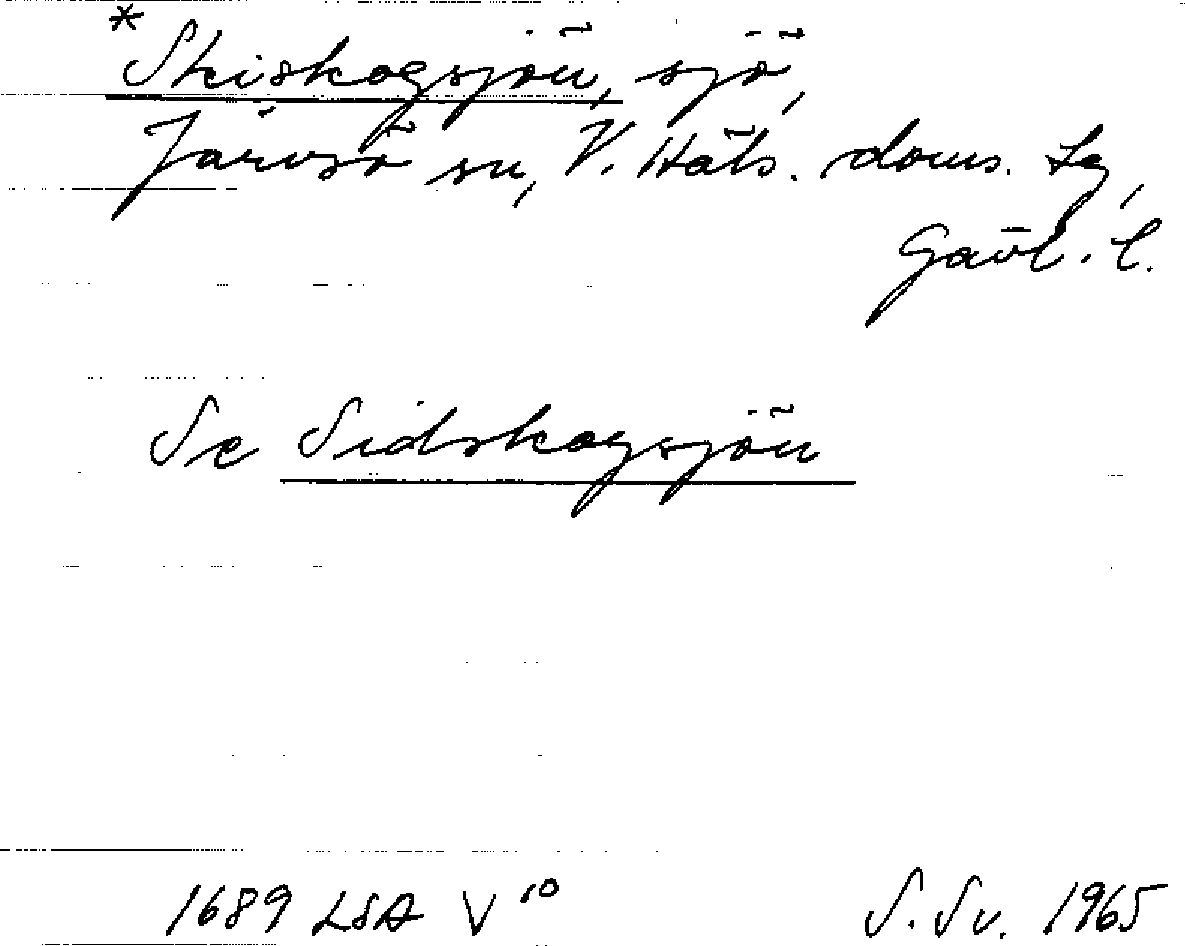 *Skiskogsjön, sjö,
Järvsö sn, V. Häls. doms. tg,
Gävl. l.
Se Sidskogsjön
1689 LSA V 10 S. Sv. 1965